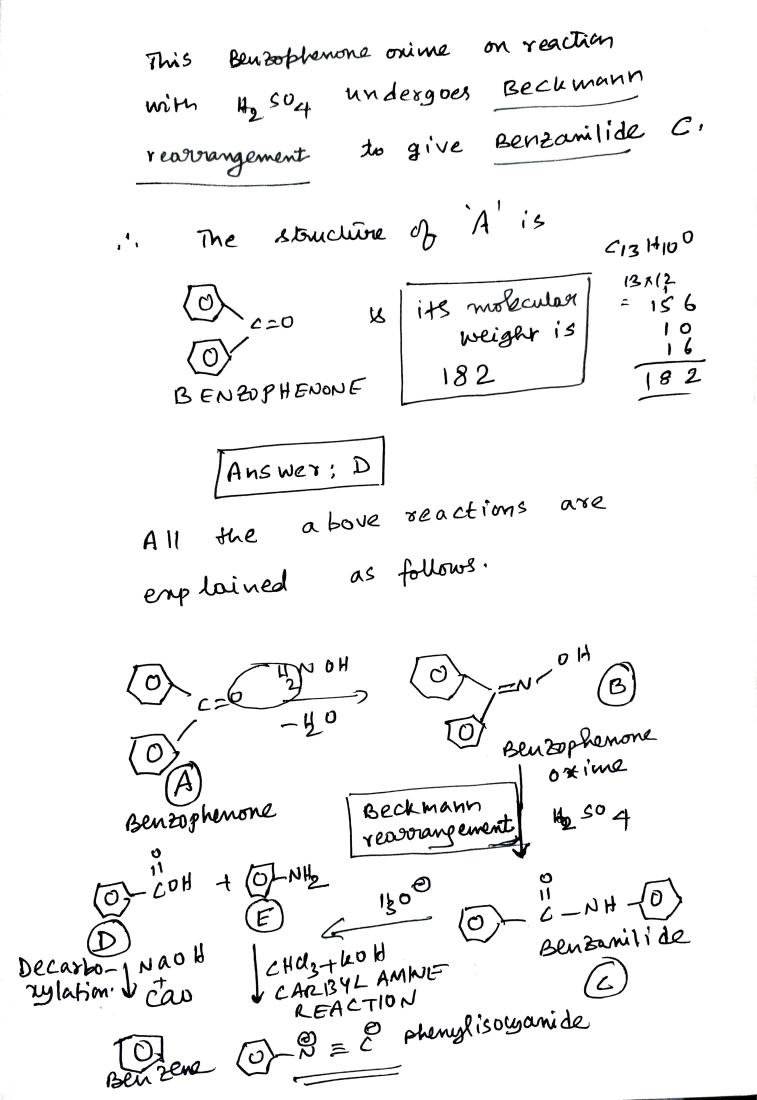 This Benzophenone oxime on reaction
with H2SO4 undergoes Beckmann
rearrangement to give Benzanilide C.
∴ The structure of 'A' is
C=O
BENZOPHENONE
& its molecular
weight is
182
C13H10O
13x12
= 156
10
16
182
Answer: D
All the above reactions are
explained as follows.
C=O H2NOH
-H2O
A
Benzophenone
=N-OH
B
Benzophenone
oxime
Beckmann
rearrangement
H2SO4
O
C-NH
Benzanilide
C
H3O⊕
O
COH + NH2
D
E
Decarbo-
xylation.
NaOH
+
CaO
CHCl3+KOH
CARBYL AMINE
REACTION
Benzene
N⊕ ≡ C⊖ phenylisocyanide